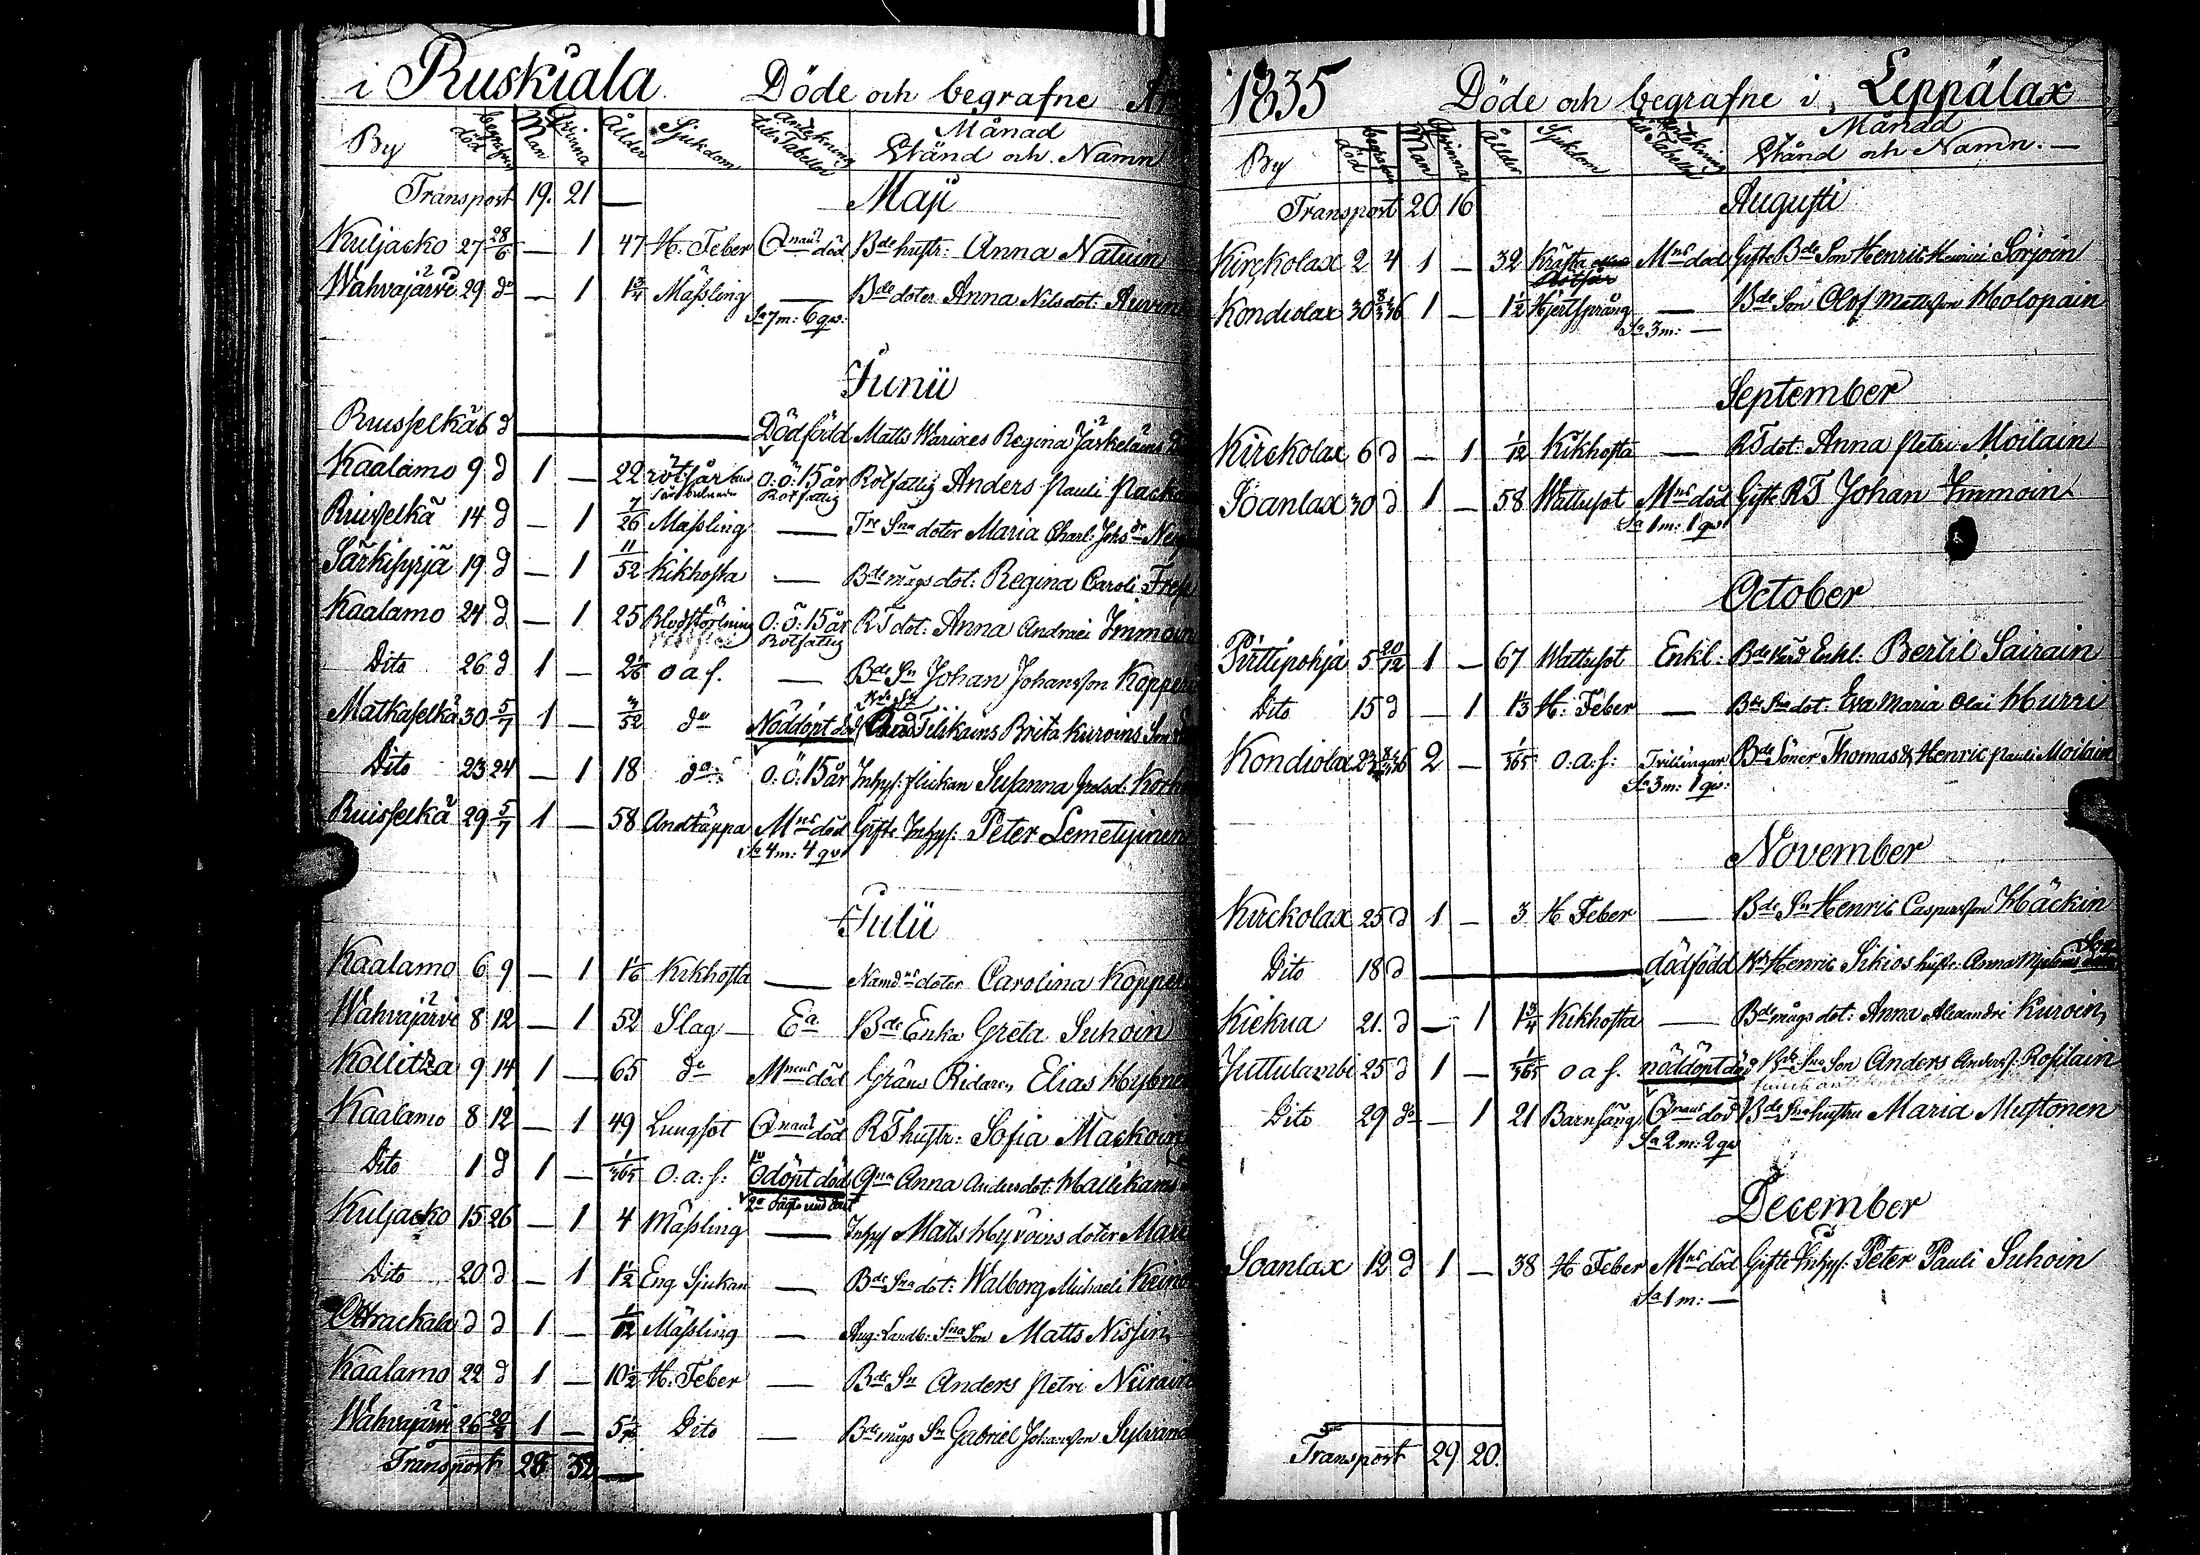 i Ruskiala Döde och begrafne År
By död begrafne Man Qvinna Ålder Sjukdom Antekning till Tabellen Månad Stånd och Namn
Transport 19. 21 — Maji
Kuljacko 27 28/6 — 1 47 H. Feber Qnans död Bde hustr: Anna Natuin
Wahvajärvi 29 do — 1 1 3/4 Mässling — Bde doter Anna Nilsdot:
Sa 7m: 6 qv:
Junii
Ruisselkä 6 d — Dödfödd Matts Warises Regina
Kaalamo 9 d 1 — 22 rötsår O:ö: 15 år Rotfattig Anders Pauli
Rotfattig
Ruisselkä 14 d — 1 7/26 Mässling — Sna doter Maria
Särkisyrjä 19 d — 1 11/52 Kikhosta — Bde mågs dot: Regina Caroli
Kaalamo 24 d — 1 25 Blodstörtning O:ö: 15 år RT dot: Anna Andraei Immoin
Rotfattig
Dito 26 d 1 — o a s. — Bde Sn Johan Johansson
Matkaselkä 30 5/7 1 — 3/52 do Nöddöpt död Tilikains Brita Kuroins Son
Dito 23 24 — 1 18 do O:ö: 15 år Inhys: flickan Susanna
Ruisselkä 29 5/7 1 — 58 Andtäppa Mns död Gifte Inhys: Peter Lemetyinen
Sa 4m: 4 qv
Julii
Kaalamo 6 9 — 1 1/6 Kikhosta — Namdns doter Carolina
Wahvajärvi 8 12 — 1 52 Slag — Ea Bde Enka Greta Suhoin
Kollitza 9 14 1 — 65 do Mnens död Gräns Ridaren Elias
Kaalamo 8 12 — 1 49 Lungsot Qnans död RT hustr: Sofia
Dito 1 d 1 — 1/365 o: a: s: Odöpt död Qna Anna Andersdot:
Kuljacko 15 26 — 1 4 Mässling — Inhys Matts Hyvöins doter
Dito 20 d — 1 1 1/2 Eng Sjukan — Bde Sna dot: Walborg Michaeli
Otrackala d d 1 — 1/12 Mässling — Landb: Sna Son Matts Nissin
Kaalamo 22 d 1 — 10 1/2 H: Feber — Bde Sn Anders Petri
Wahvajärvi 26 1 — Dito — Bde mågs Sn Gabriel Johansson
Transport 28 32 —
1835 Döde och begrafne i Leppälax
By död begrafne Man Qvinna Ålder Sjukdom Antekning till Tabellen Månad Stånd och Namn. —
Transport 20 16 Augusti
Kirckolax 2 4 1 — 32 Kräfta Mns död Gifte Bde Son Henric Henrici Sorjoin
Kondiolax 30 8/3 36 1 — 1 1/2 Hjertsprång — Bde Son Olof Mattsson Holopain
Sa 3m: —
September
Kirckolax 6 d — 1 1/12 Kikhosta — RT dot: Anna Petri Moilain
Soanlax 30 d 1 — 58 Wattusot Mns död Gifte RT Johan Immoin
Sa 1m: 1 qv
October
Pirttipohja 5 20/12 1 — 67 Wattusot Enkl: Bde Enkl: Bertil Sairain
Dito 15 d — 1 1 1/3 H: Feber — Bde Sna dot: Eva Maria Olai Hurri
Kondiolax 23 36 2 — 1/365 o: a: s: Trillingar Bde Söner Thomas & Henric Pauli Moilain
Sa 3m: 1 qv:
November
Kirckolax 25 d 1 — 3 H Feber — Bde Sn Henric Caspersson Häckin
Dito 18 d — dödfödd Henric Sikios hustr: Anna
Kiekua 21. d — 1 1 3/4 Kikhosta — Bde mågs dot: Anna Alexandri Kuroin
Juttulambi 25 d 1 — 1/365 o a s. nöddöpt död Bde Sna Son Anders Anderss. Rossilain
Dito 29 do — 1 21 Barnsäng Qnans död Bde Sna hustru Maria Mustonen
Sa 2m: 2 qv
December
Soanlax 12 d 1 — 38 H Feber Mns död Gifte Inhys: Peter Pauli Suhoin
Sa 1m: —
Transport 29 20.